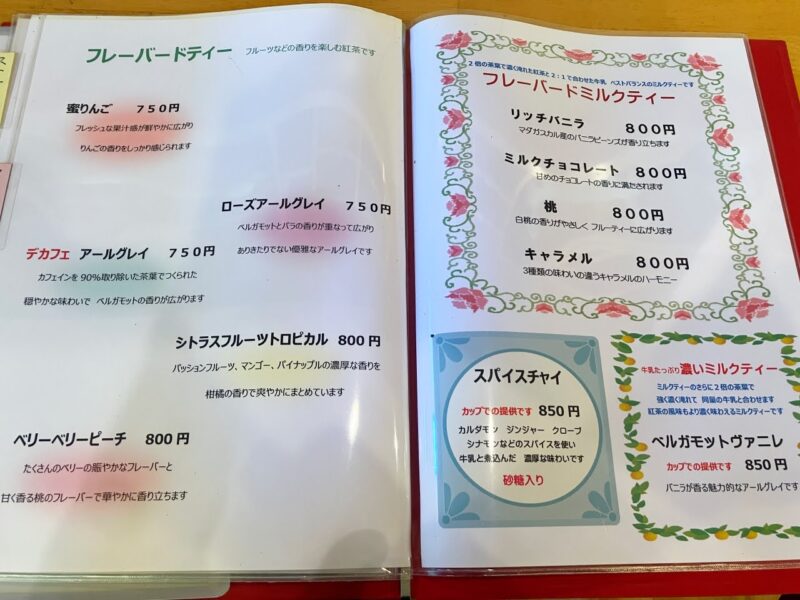 フレーバードティー フルーツなどの香りを楽しむ紅茶です
蜜りんご 750円
フレッシュな果汁感が鮮やかに広がり
りんごの香りをしっかり感じられます
ローズアールグレイ 750円
ベルガモットとバラの香りが重なって広がり
ありきたりでない優雅なアールグレイです
デカフェ アールグレイ 750円
カフェインを90%取り除いた茶葉でつくられた
穏やかな味わいで ベルガモットの香りが広がります
シトラスフルーツトロピカル 800円
パッションフルーツ、マンゴー、パイナップルの濃厚な香りを
柑橘の香りで爽やかにまとめています
ベリーベリーピーチ 800円
たくさんのベリーの賑やかなフレーバーと
甘く香る桃のフレーバーで華やかに香り立ちます
2倍の茶葉で濃く淹れた紅茶と2:1で合わせた牛乳 ベストバランスのミルクティーです
フレーバードミルクティー
リッチバニラ 800円
マダガスカル産のバニラビーンズが香り立ちます
ミルクチョコレート 800円
甘めのチョコレートの香りに満たされます
桃 800円
白桃の香りがやさしく フルーティーに広がります
キャラメル 800円
3種類の味わいの違うキャラメルのハーモニー
スパイスチャイ
カップでの提供です 850円
カルダモン ジンジャー クローブ
シナモンなどのスパイスを使い
牛乳と煮込んだ 濃厚な味わいです
砂糖入り
牛乳たっぷり濃いミルクティー
ミルクティーのさらに2倍の茶葉で
強く濃く淹れて 同量の牛乳と合わせます
紅茶の風味もより濃く味わえるミルクティーです
ベルガモットヴァニレ
カップでの提供です 850円
バニラが香る魅力的なアールグレイです